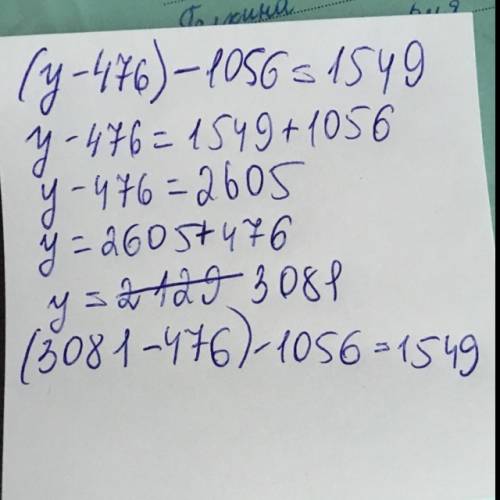 (y-476)-1056=1549
y-476=1549+1056
y-476=2605
y=2605+476
y=2129 3081
(3081-476)-1056=1549